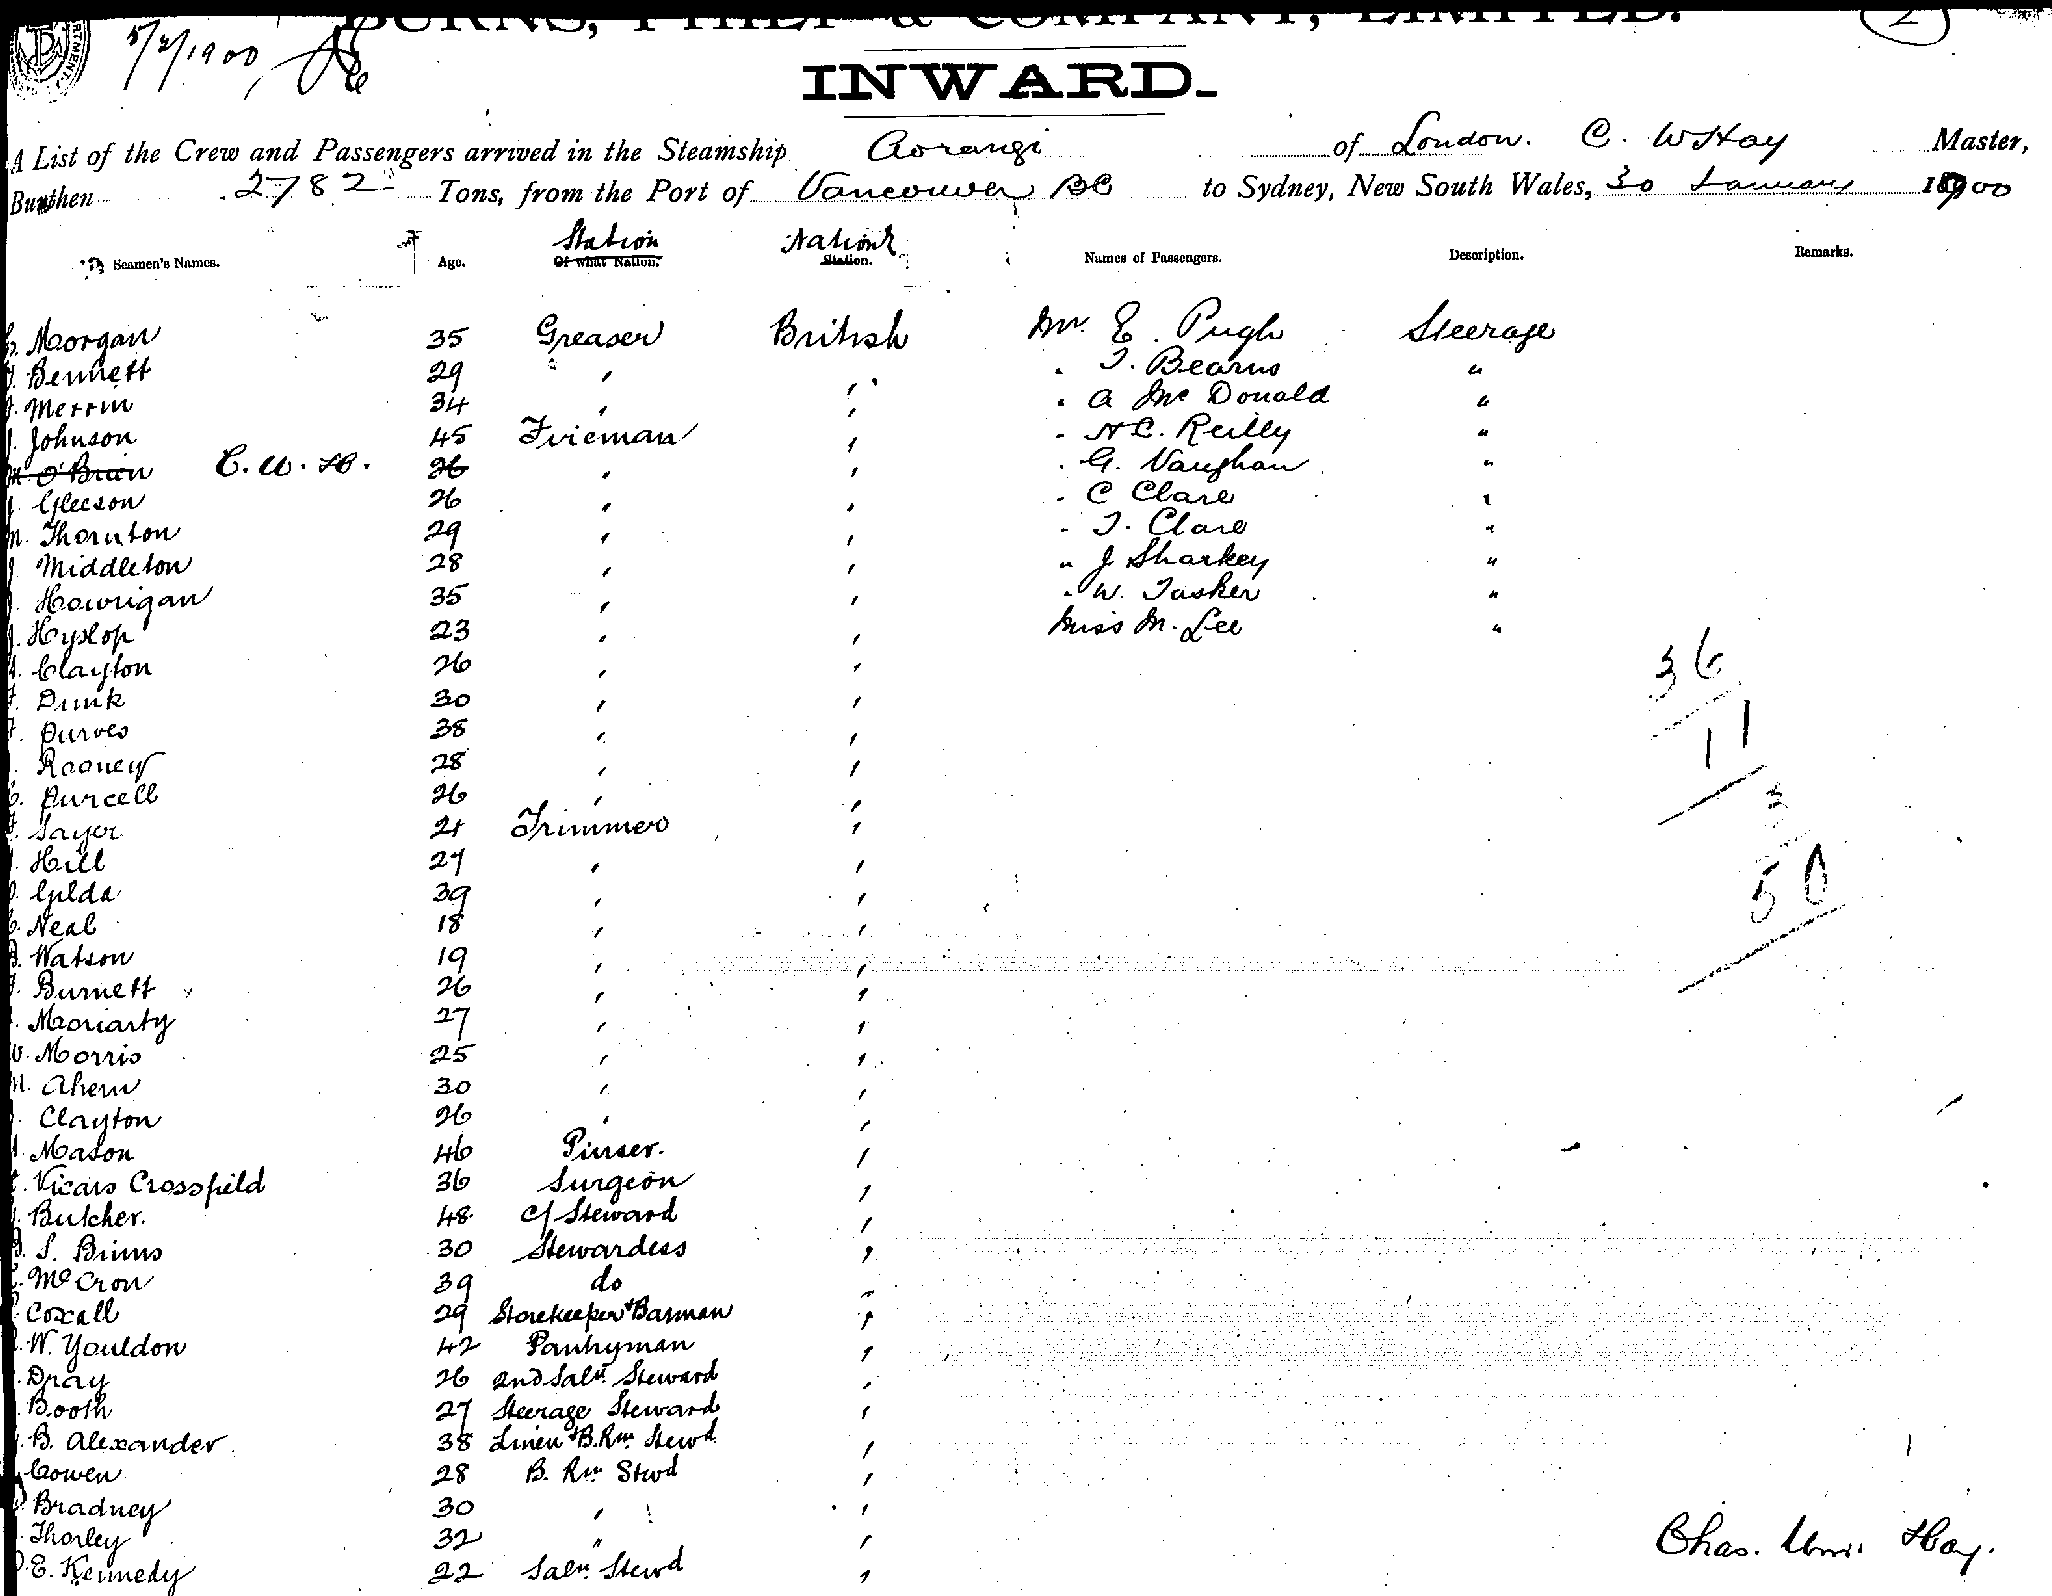 5/2/1900,
BURNS, PHILP & COMPANY, LIMITED.
2
INWARD.
A List of the Crew and Passengers arrived in the Steamship Aorangi of London. C. W Hay Master,
Burthen 2782 Tons, from the Port of Vancouver BC to Sydney, New South Wales, 30 January 1900
Station Nation
Seamen's Names. Age. Of what Nation. Station. Names of Passengers. Description. Remarks.
Morgan 35 Greaser British Mr. E. Pugh Steerage
Bennett 29 " " " T. Bearns "
Merrin 34 " " " A McDonald "
J. Johnson 45 Fireman " " N C. Reilly "
M. O'Brien C. W. H. 26 " " " G. Vaughan "
J. Gleeson 26 " " " C Clare "
M. Thornton 29 " " " T. Clare "
J Middleton 28 " " " J Sharkey "
J. Hourigan 35 " " " W. Tasker "
J. Hyslop 23 " " Miss M. Lee "
Clayton 26 " "
36
Dunk 30 " "
Purves 38 " "
11
Rooney 28 " "
Purcell 26 " "
3
Sayer 21 Trimmer "
Hill 27 " "
Gilda 39 " "
50
Neal 18 " "
Watson 19 " "
Burnett 26 " "
Moriarty 27 " "
Morris 25 " "
M. Ahern 30 " "
Clayton 26 " "
Mason 46 Purser. "
Vicars Crossfield 36 Surgeon "
Butcher. 48 C/ Steward "
S. Binns 30 Stewardess "
McCron 39 do "
Coxall 29 Storekeeper & Barman "
W. Youldon 42 Pantryman "
Dray 26 2nd Saln Steward "
Booth 27 Steerage Steward "
B. Alexander 38 Linen & B. Rm Stewd "
Cowen 28 B. Rm Stwd "
Bradney 30 " "
Thorley 32 " "
E. Kennedy 22 Saln. Stewd "
Chas. Wm. Hay.